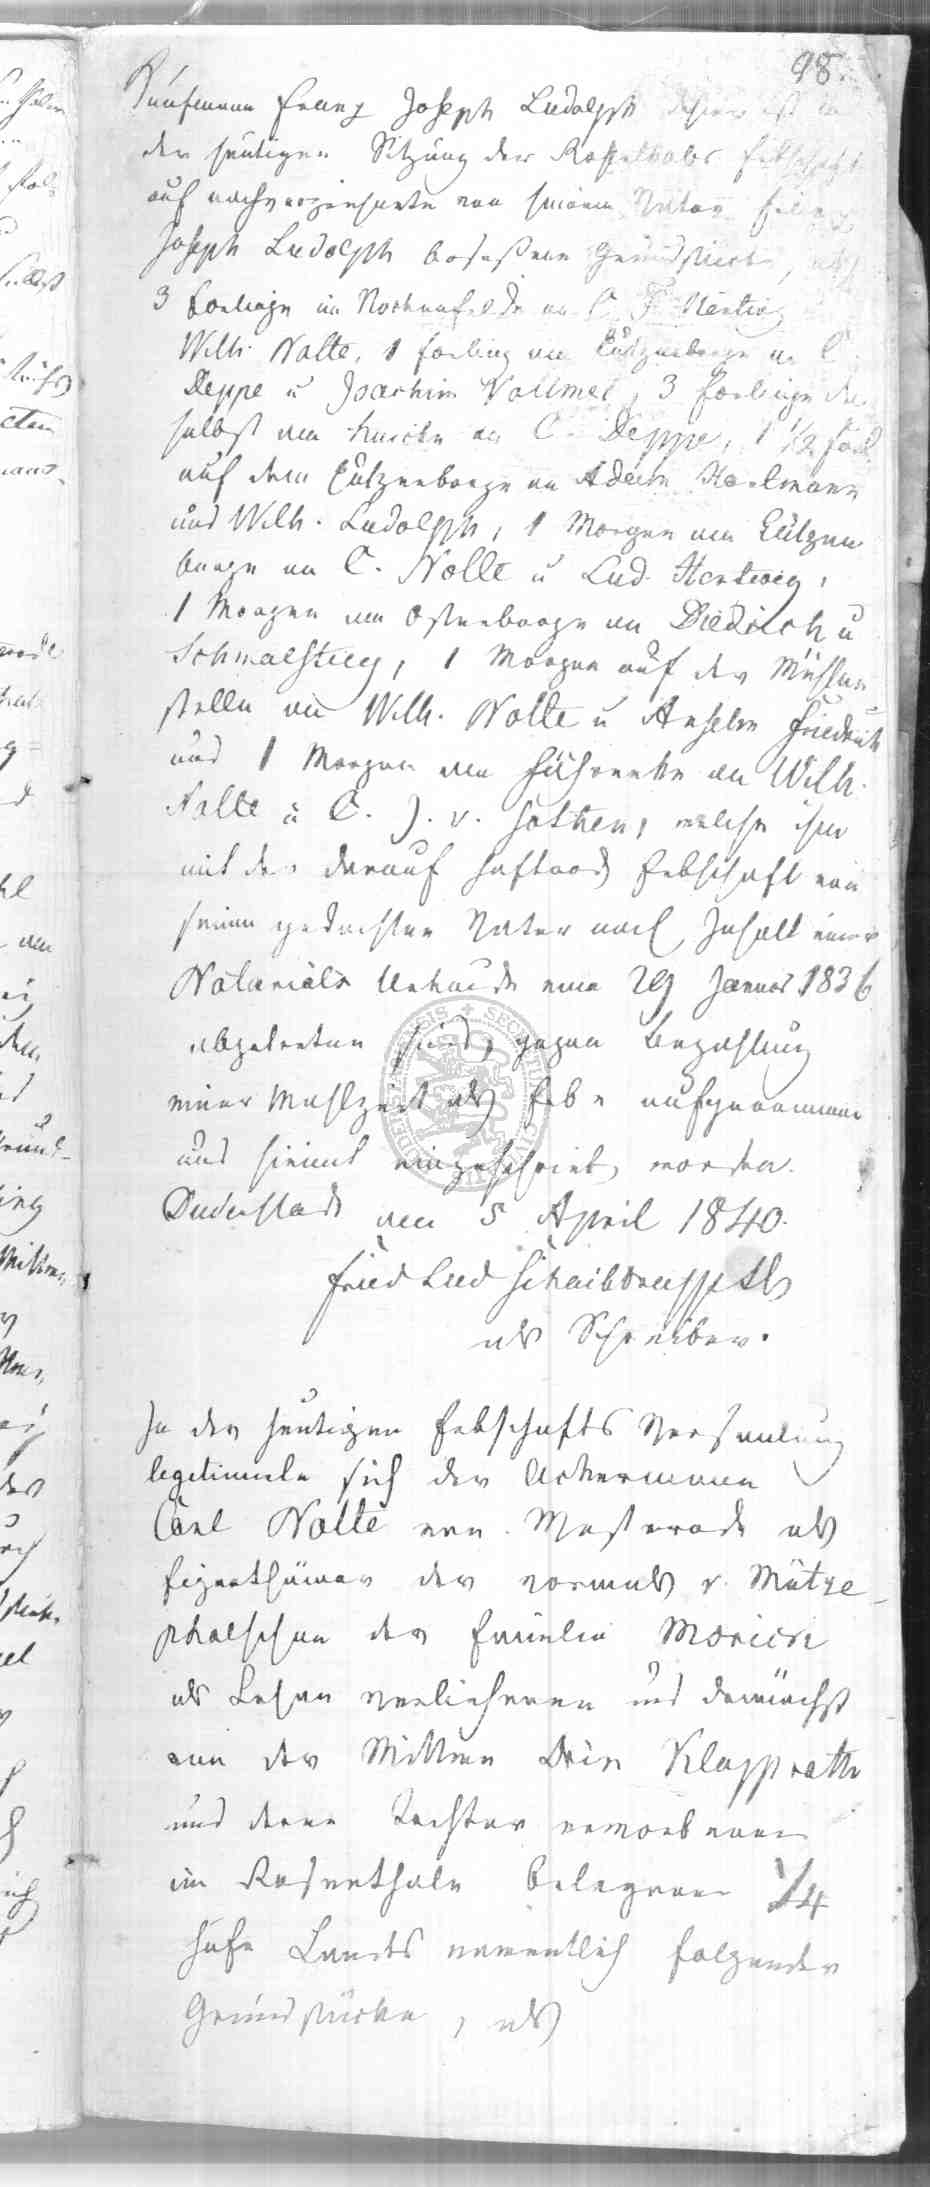 98.
Kaufmann Franz Joseph Ludolph dahier ist in
der heutigen Sitzung der Erbschaft
auf nachverzeichnete von seinem Vater
Joseph Ludolph besessene Grundstücke, als
3 Forlinge im an C. F. Hertwig
Wilh. Nolte, 1 Forling am Eulzenberge an C.
Deppe u Joachim Vollmer, 3 Forlinge da
selbst am an C. Deppe, 1 1/2 Forl.
auf dem Eulzenberge an Adam
und Wilh. Ludolph, 1 Morgen am Eulzen
berge an C. Nolte u Lud. Hertwig,
1 Morgen am Osterberge an Diedrich u
Schmalstieg, 1 Morgen auf der Mühlen
stelle an Wilh. Nolte u Anselm Friedrich
und 1 Morgen am an Wilh.
Nolte u C. J. v. Hothen, welche ihm
mit der darauf haftend Erbschaft von
seinem gedachten Vater nach Inhalt einer
Notariats Urkunde vom 29 Januar 1836
abgetreten sind, gegen Bezahlung
einer Mahlzeit als Erbe aufgenommen
und hiemit eingeschrieb worden.
Duderstadt am 5 April 1840.
Fried Lud
als Schreiber.
In der heutigen Erbschafts Versamlung
legitimirte sich der Ackermann
Carl Nolte von Westerode als
Eigenthümer der vormals v. Mütze
phalschen der Familie Moricke
als Lehen verliehenen und demnächst
von der Wittwe Klapproth
und deren Tochter erworbenen
im Rosenthale belegenen 1/4
Hufe Landes namentlich folgender
Grundstücke, als